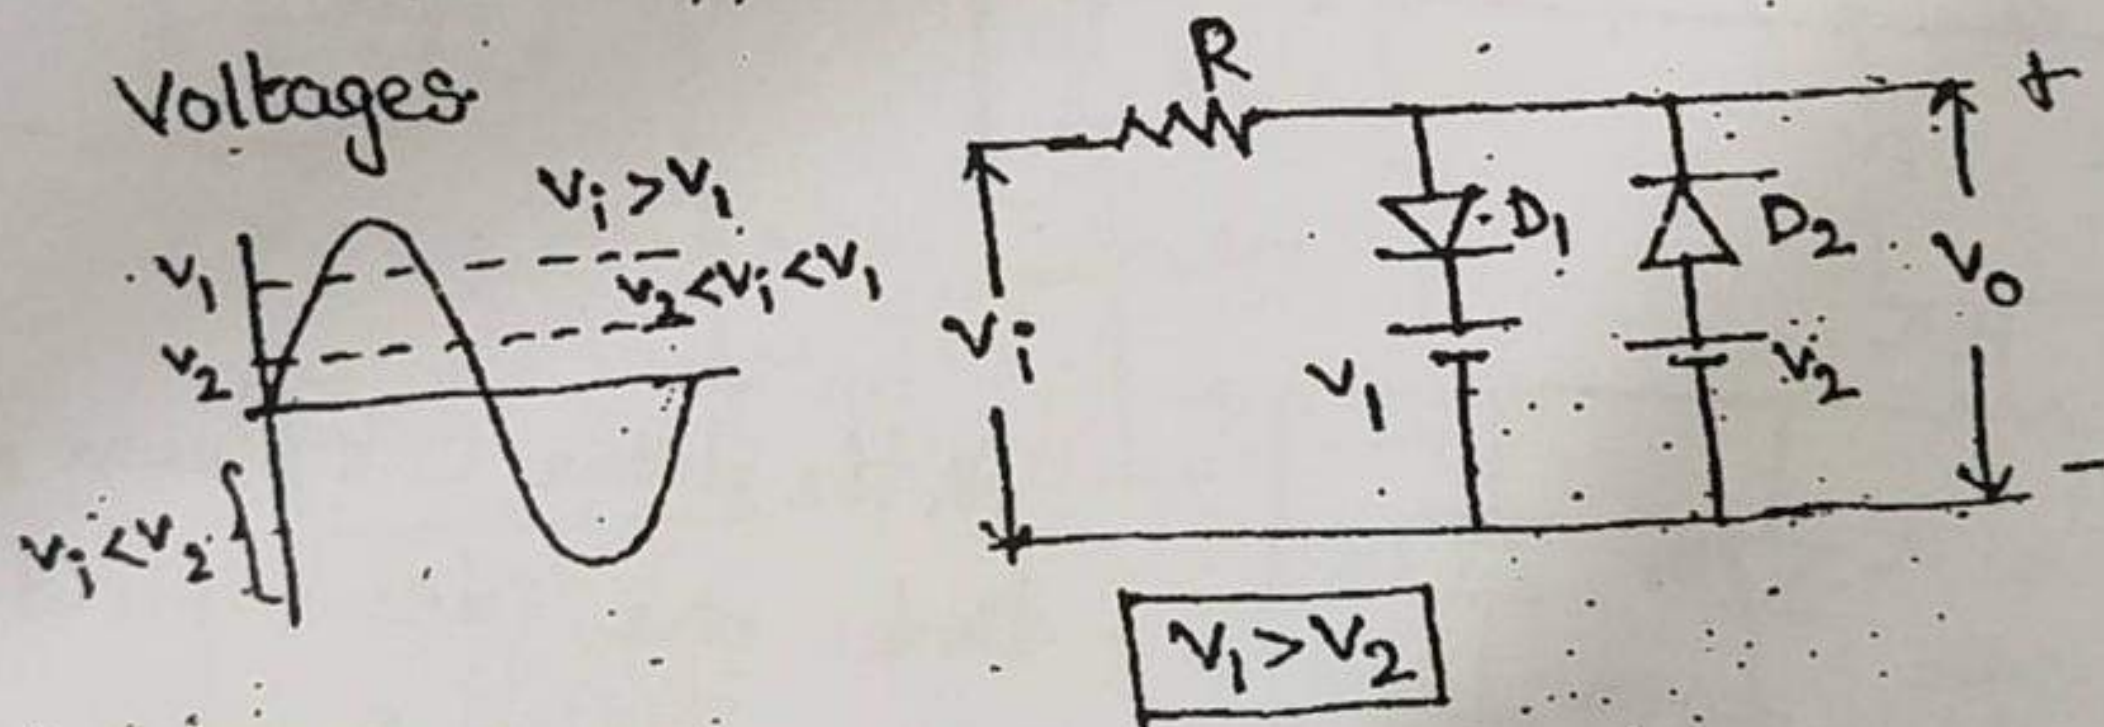 Voltages
Vi > V1
V1
V2 < Vi < V1
V2
Vi < V2
R
+
D1
D2
Vi
Vo
V1
V2
-
V1 > V2